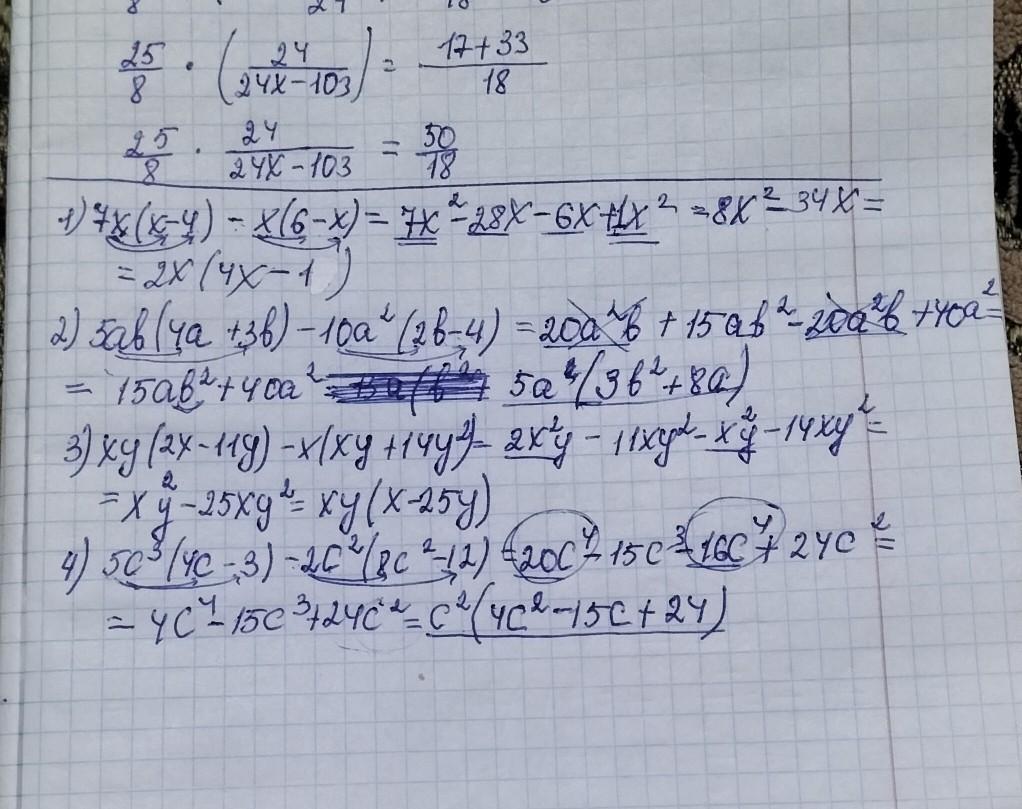 8 24 18
25/8 · (24/(24x-103)) = (17+33)/18
25/8 · 24/(24x-103) = 50/18
1) 7x(x-4) - x(6-x) = 7x² - 28x - 6x + 1x² = 8x² - 34x =
= 2x(4x-1 )
2) 5ab(4a+3b) - 10a²(2b-4) = 20a²b + 15ab² - 20a²b + 40a² =
= 15ab² + 40a² 5a(3b²+8a)
3) xy(2x-11y) - x(xy+14y²) = 2x²y - 11xy² - x²y - 14xy² =
= x²y - 25xy² = xy(x-25y)
4) 5c³(4c-3) - 2c²(8c²-12) = 20c⁴ - 15c³ - 16c⁴ + 24c² =
= 4c⁴ - 15c³ + 24c² = c²(4c²-15c+24)